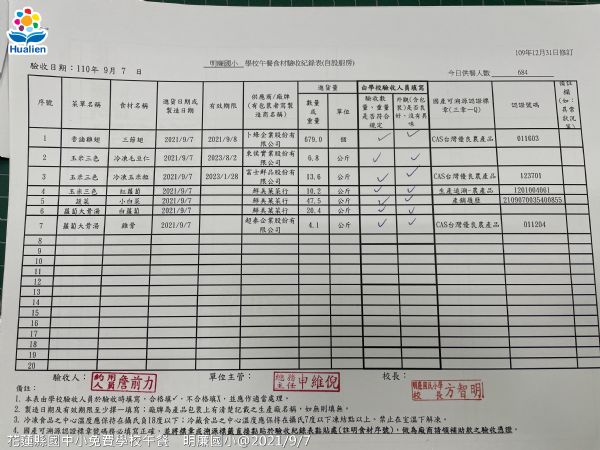 Hualien
109年12月31日修訂
明廉國小 學校午餐食材驗收紀錄表(自設廚房)
驗收日期:110年 9月 7 日
今日供餐人數 684
序號 菜單名稱 食材名稱 進貨日期或製造日期 有效期限 供應商/廠牌(有包裝者寫製造商名稱) 進貨量 由學校驗收人員填寫 國產可溯源認證標章(三章一Q) 認證號碼 備註欄(如:異常狀況等)
數量或重量 單位 驗收數量、重量是否符合規定 外觀(含包裝)是否良好、沒有異味
1 香滷雞翅 三節翅 2021/9/7 2021/9/8 卜蜂企業股份有限公司 679.0 個 ✓ ✓ CAS台灣優良農產品 011603
2 玉米三色 冷凍毛豆仁 2021/9/7 2023/8/2 東侑實業股份有限公司 6.8 公斤 ✓ ✓
3 玉米三色 冷凍玉米粒 2021/9/7 2023/1/28 富士鮮品股份有限公司 13.6 公斤 ✓ ✓ CAS台灣優良農產品 123701
4 玉米三色 紅蘿蔔 2021/9/7 鮮美菓菜行 10.2 公斤 ✓ ✓ 生產追溯-農產品 1201004061
5 蔬菜 小白菜 2021/9/7 鮮美菓菜行 47.5 公斤 ✓ ✓ 產銷履歷 2109070035400855
6 蘿蔔大骨湯 白蘿蔔 2021/9/7 鮮美菓菜行 20.4 公斤 ✓ ✓
7 蘿蔔大骨湯 雞骨 2021/9/7 超秦企業股份有限公司 4.1 公斤 ✓ ✓ CAS台灣優良農產品 011204
8
9
10
11
12
13
14
15
16
17
18
19
20
驗收人: 約用人員 詹前力 單位主管: 總務主任 申維倪 校長: 明廉國民小學校長 方智明
備註:
1. 本表由學校驗收人員於驗收時填寫,合格填✓,不合格填X,並應作適當處理。
2. 製造日期及有效期限至少擇一填寫;廠牌為產品包裝上有清楚記載之生產廠名稱,如無則填無。
3. 冷凍食品之中心溫度應保持在攝氏負18度以下;冷藏食品之中心溫度應保持在攝氏7度以下凍結點以上。禁止在室溫下解凍。
4. 國產可溯源認證標章號碼務必填寫正確,並將標章或溯源標籤直接黏貼於驗收紀錄表黏貼處(註明食材序號),做為廠商請領補助款之驗收憑證。
花蓮縣國中小免費學校午餐 明廉國小@2021/9/7